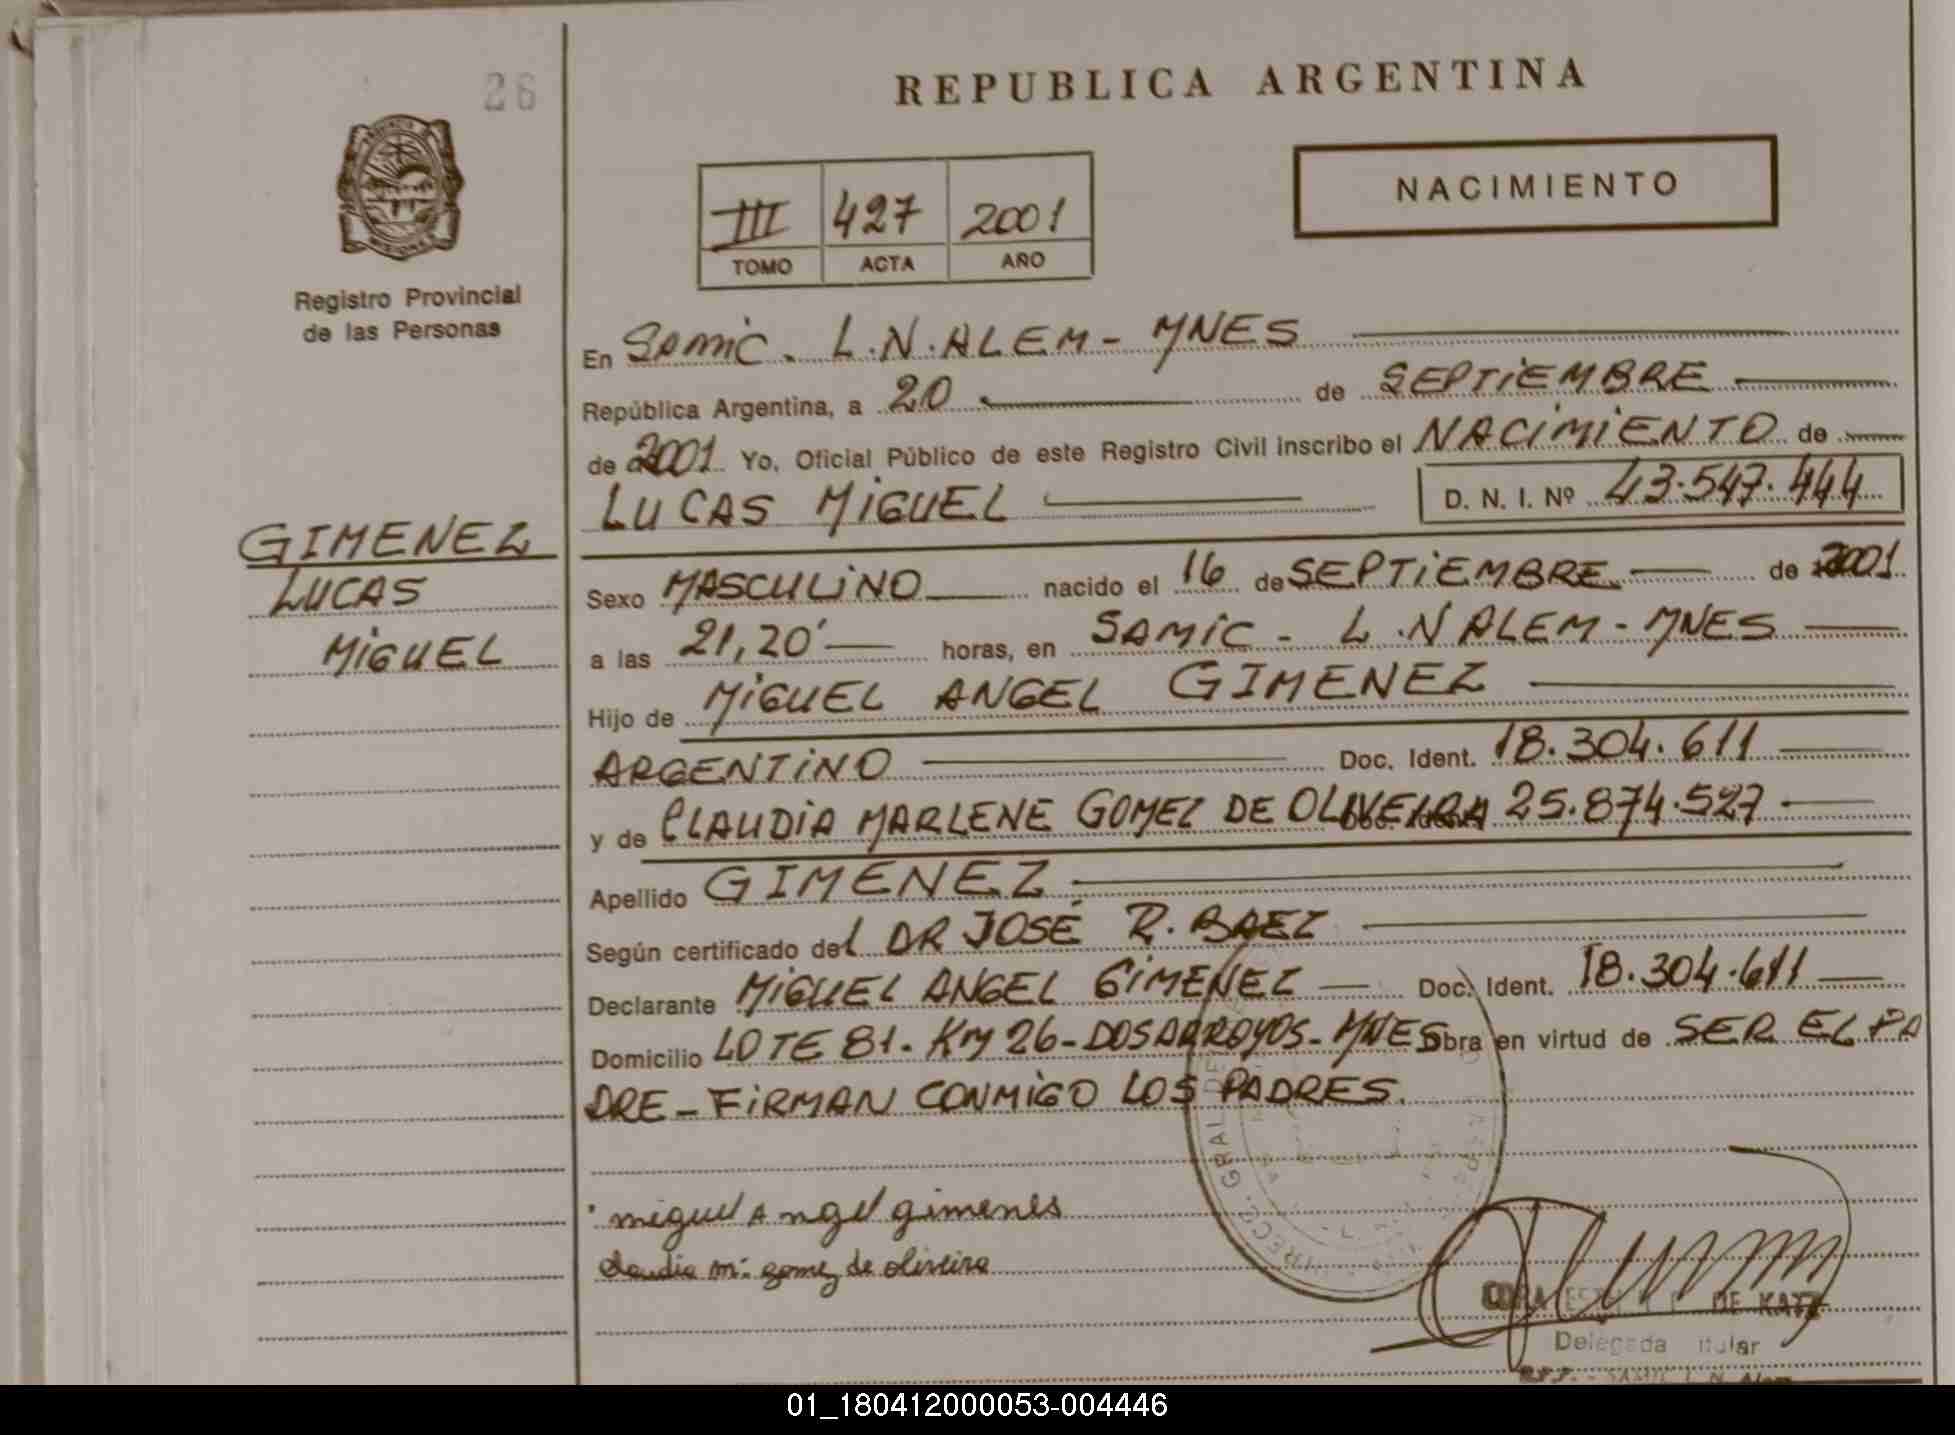 26
REPUBLICA ARGENTINA
NACIMIENTO
III 427 2001
TOMO ACTA AÑO
Registro Provincial
de las Personas
En SAMIC. L.N.ALEM - MNES
República Argentina, a 20 de SEPTIEMBRE
de 2001 Yo, Oficial Público de este Registro Civil inscribo el NACIMIENTO de
LUCAS MIGUEL D. N. I. Nº 43.547.444
GIMENEZ
LUCAS
MIGUEL
Sexo MASCULINO nacido el 16 de SEPTIEMBRE de 2001
a las 21,20' horas, en SAMIC - L.N ALEM - MNES
Hijo de MIGUEL ANGEL GIMENEZ
ARGENTINO Doc. Ident. 18.304.611
y de CLAUDIA MARLENE GOMEZ DE OLIVEIRA 25.874.527
Apellido GIMENEZ
Según certificado del DR JOSÉ R. BAEZ
Declarante MIGUEL ANGEL GIMENEZ Doc. Ident. 18.304.611
Domicilio LOTE 81. KM 26 - DOS ARROYOS - MNES Obra en virtud de SER EL PA
DRE - FIRMAN CONMIGO LOS PADRES.
miguel Angel gimenes
claudia m. gomez de oliveira
DE KATZ
Delegada Titular
L. N. Alem
01_180412000053-004446